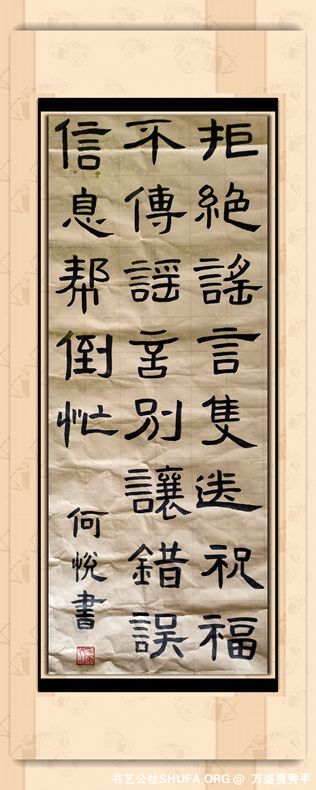 拒絶謡言隻送祝福
不傳謡言别讓錯誤
信息帮倒忙
何悦書
书艺公社SHUFA.ORG @ 万盛